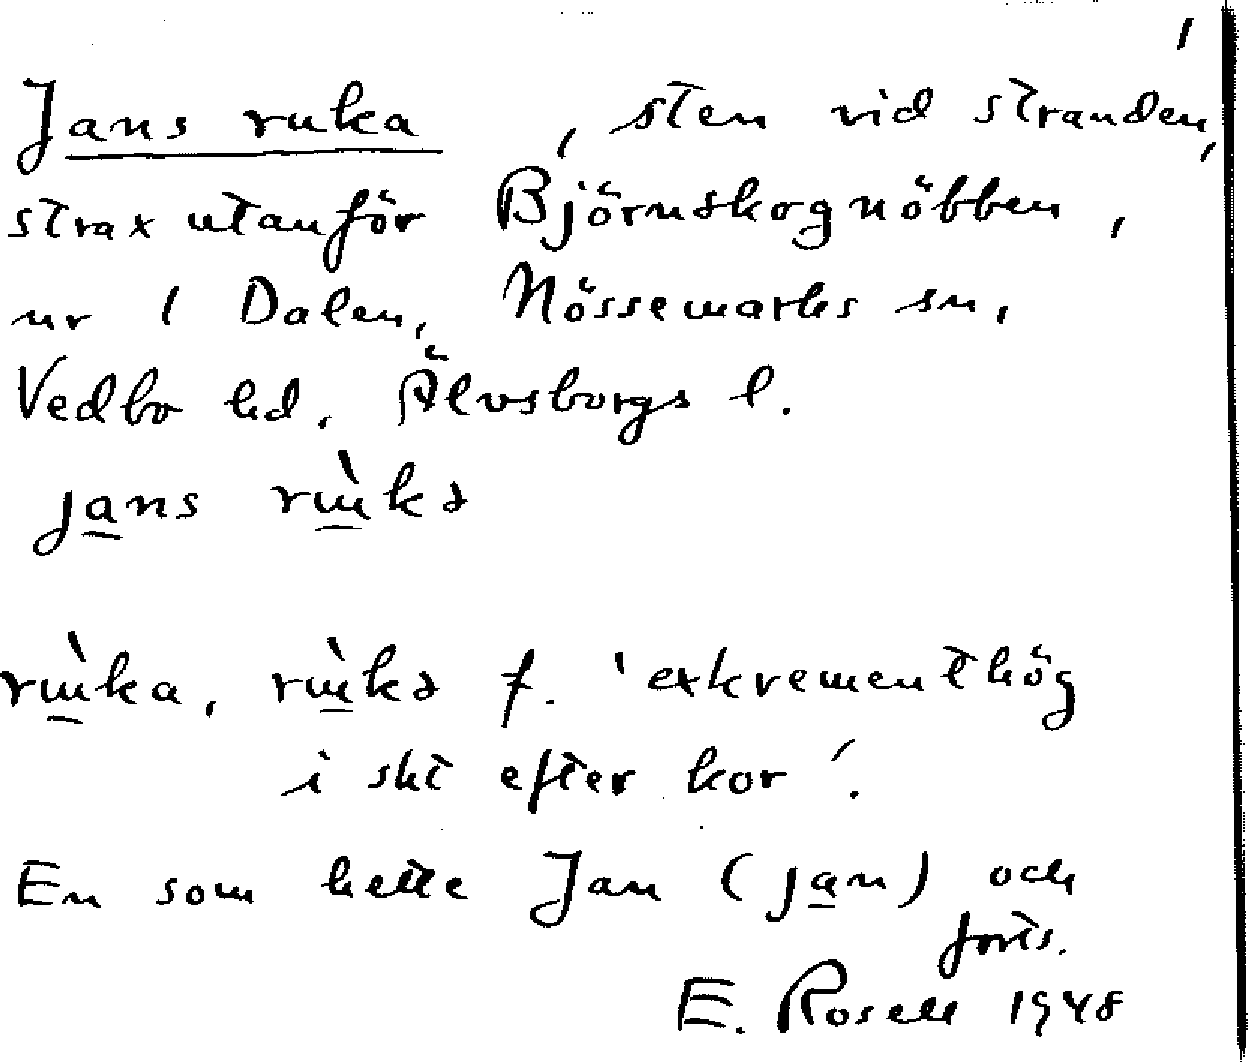 1
Jans ruka, sten vid stranden,
strax utanför Björnskognöbben,
nr 1 Dalen, Nössemarks sn,
Vedbo hd, Älvsborgs l.
jans rɯ̀kə
rɯ̀ka, rɯ̀kə f. 'exkrementhög
i skt efter kor'.
En som hette Jan (jan) och
forts.
E. Rosell 1948